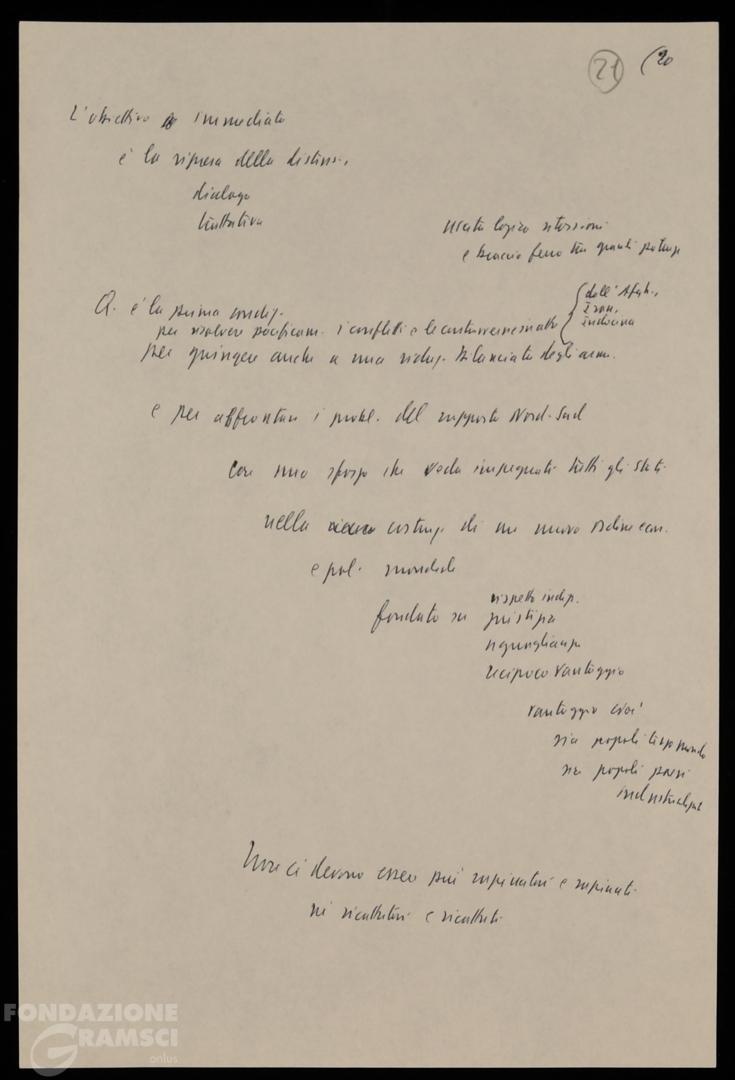 21 (20
L'obiettivo immediato
è la ripresa della distens.,
dialogo
trattativa
uscita logica ritorsioni
e braccio ferro tra grandi potenze
Q. è la prima condiz.
per risolvere pacificam. i conflitti e le controversie in atto
dall'Afgh.,
Iran,
Indocina
per giungere anche a una riduz. bilanciata degli arm.
e per affrontare i probl. del rapporto Nord-Sud
con uno sforzo che veda impegnati tutti gli stati
nella costruz. di un nuovo ordine econ.
e pol. mondiale
fondato su
rispetto indip.
giustizia
uguaglianza
reciproco vantaggio
vantaggio cioè
sia popoli terzo mondo
sia popoli paesi
industrializz.
Non ci devono essere più rapinatori e rapinati
né ricattatori e ricattati
FONDAZIONE
GRAMSCI
onlus